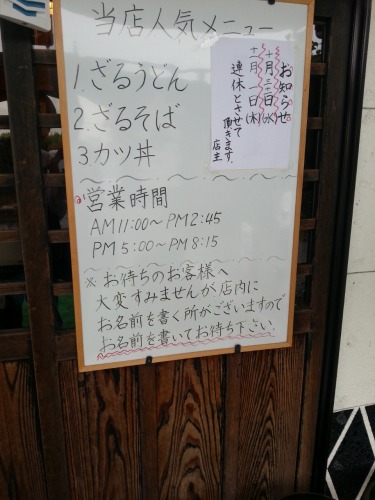 当店人気メニュー
1.ざるうどん
2.ざるそば
3カツ丼
お知らせ
十月三十一日(水)
十一月一日(木)
連休とさせて
頂きます。
店主
営業時間
AM11:00~PM2:45
PM5:00~PM8:15
※お待ちのお客様へ
大変すみませんが店内に
お名前を書く所がございますので
お名前を書いてお待ち下さい